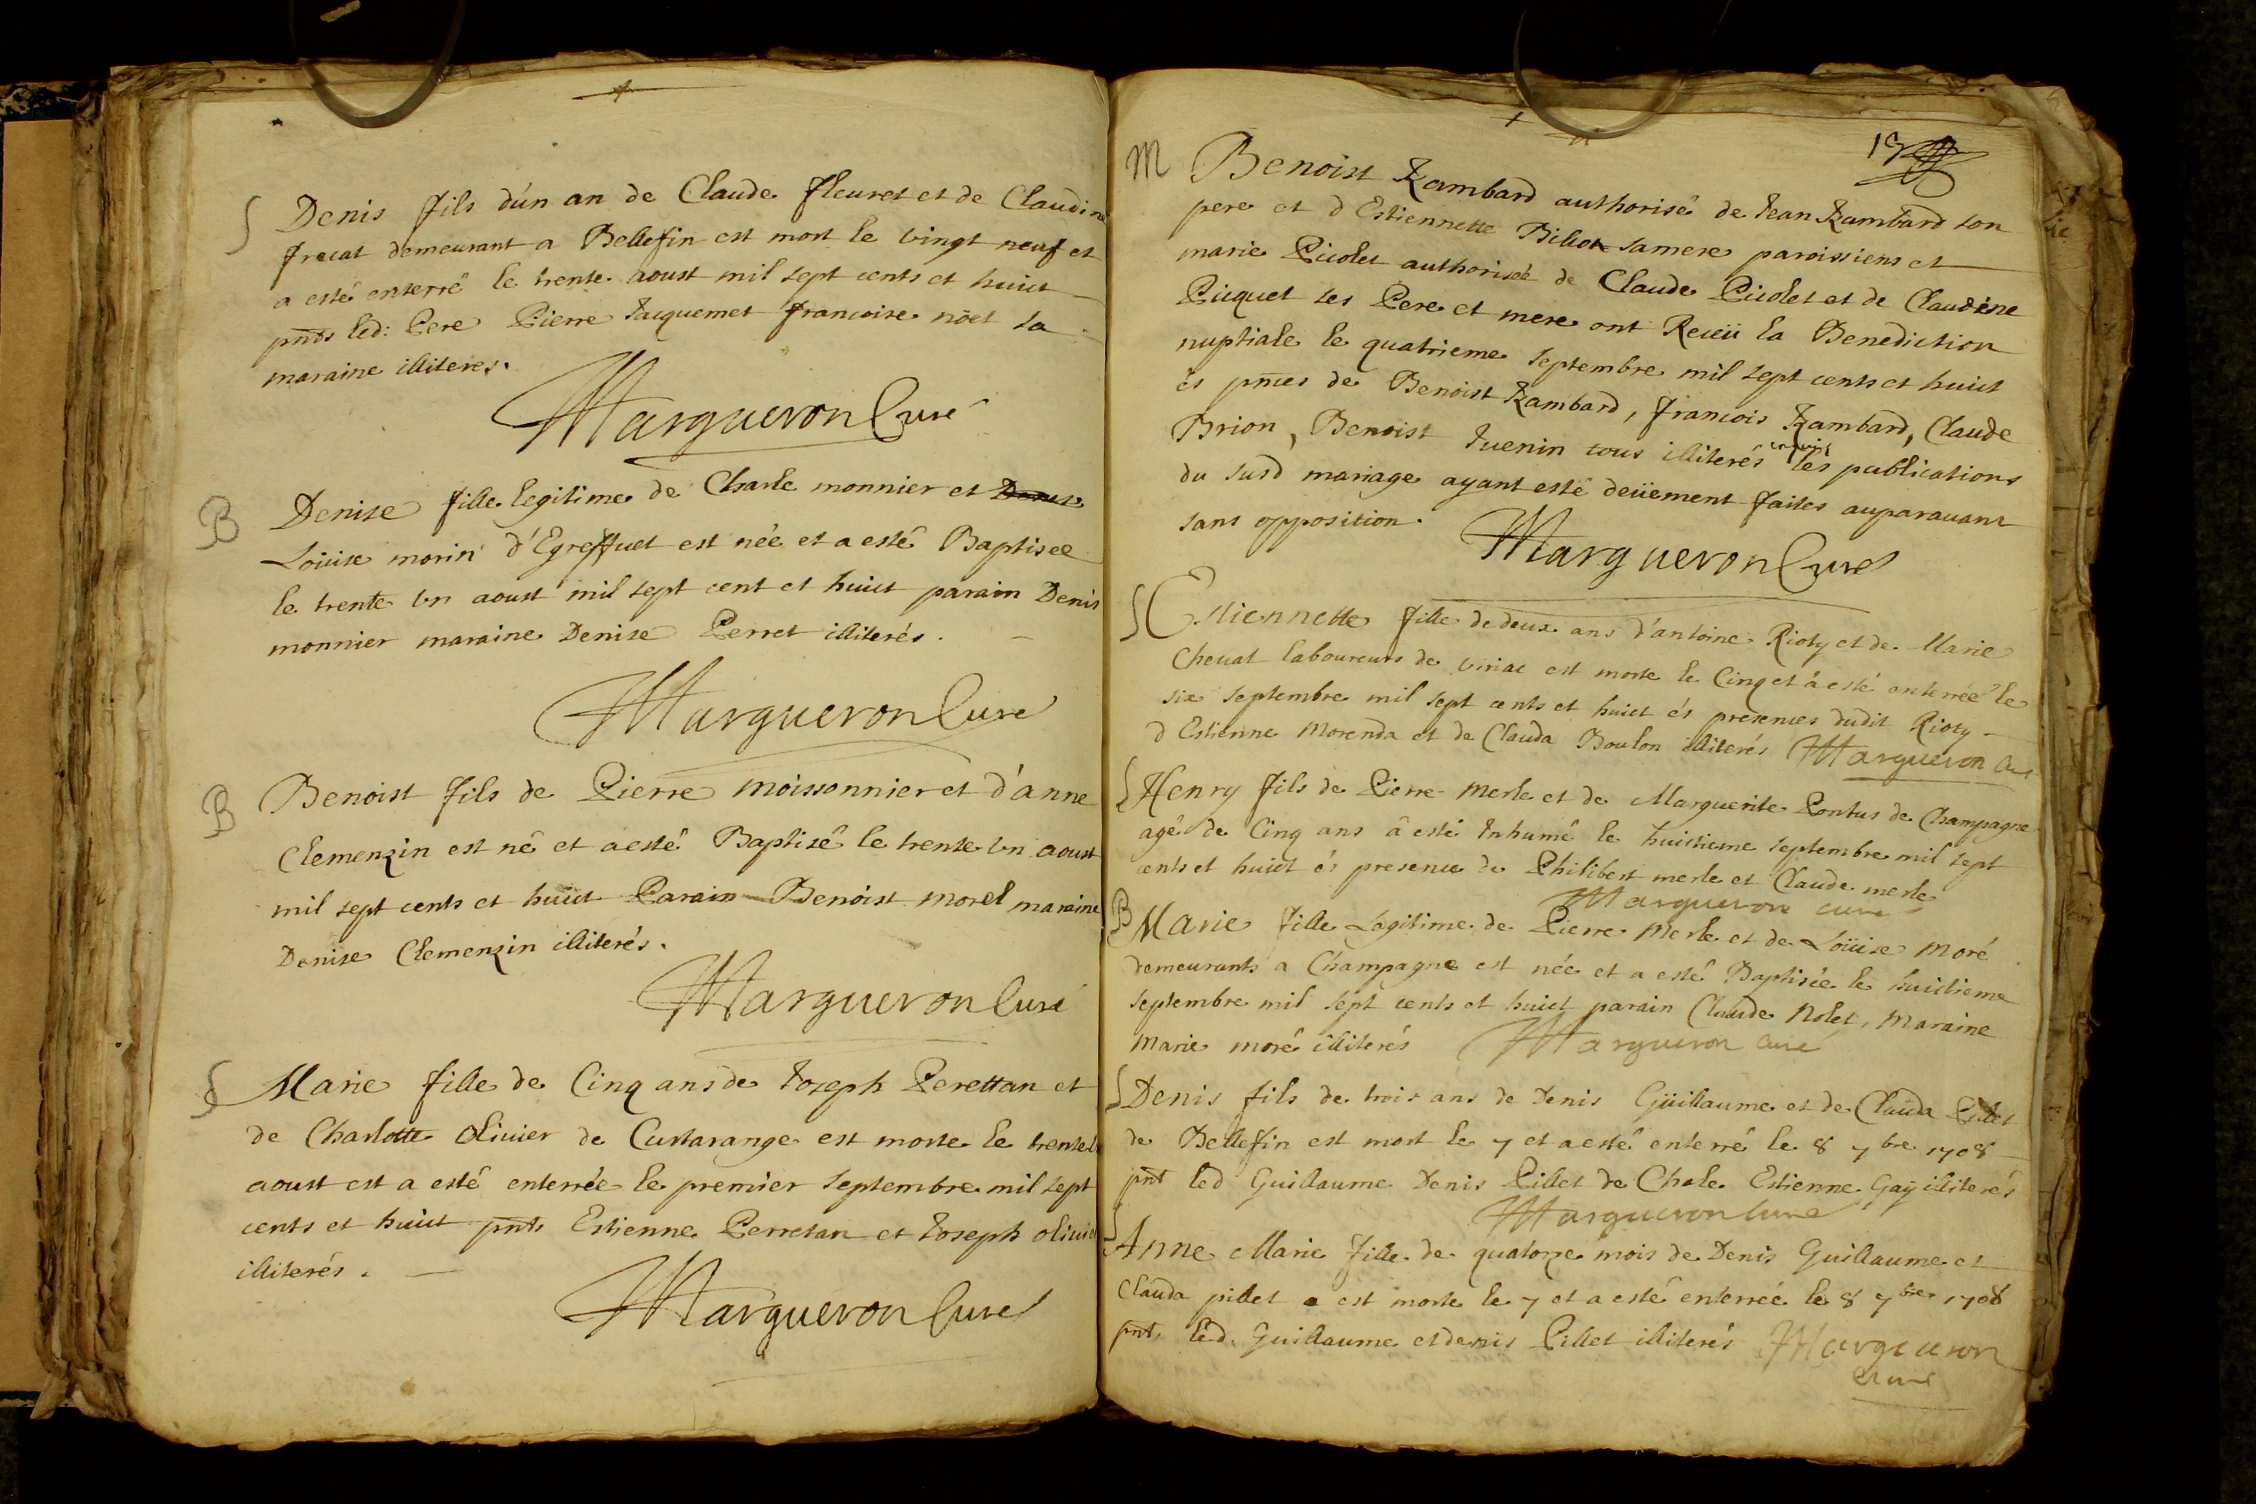 S Denis fils d'ún an de Claude fleuret et de Claudine
frecat demeurant a Bellefin est mort le vingt neuf et
a esté enterré le trente aoust mil sept cents et huict
pnts led: Pere Pierre Jacquemet francoise nöel sa
maraine illiteres.
Margueron Curé
B Denise fille legitime de Charle monnier et
Loüise morin d'Egreffuel est née et a esté Baptisee
le trente vn aoust mil sept cent et huict parain Denis
monnier maraine Denise Perret illiterés.
Margueron Curé
B Benoist fils de Pierre moissonnier et d'anne
Clemenzin est né et a esté Baptisé le trente vn aoust
mil sept cents et huict Parain Benoist morel maraine
Denise Clemenzin illiterés.
Margueron Curé
S Marie fille de Cinq ans de Joseph Perettan et
de Charlotte Olivier de Curtarange est morte le trente
aoust est a esté enterrée le premier septembre mil sept
cents et huict pnts Estienne Perretan et Joseph olivier
illiterés.
Margueron Curé
13
M Benoist Rambard authorisé de Jean Rambard son
pere et d Estiennette Biliot sa mere paroissiens et
marie Picolet authorisée de Claude Picolet et de Claudine
Picquet ses Pere et mere ont Receü la Benediction
nuptiale le quatrieme septembre mil sept cents et huict
és pnces de Benoist Rambard, francois Rambard, Claude
Brion, Benoist Juenin tous illiterés les publications
du susd mariage ayant esté deüement faites auparauant
sans opposition.
Margueron Curé
S Estiennette fille de deux ans d'antoine Rioty et de Marie
Cheuat laboureurs de viriat est morte le Cinq et a esté enterrée le
six septembre mil sept cents et huict és presences dudit Rioty
d Estienne Morenda et de Clauda Boulon illiterés Margueron Curé
S Henry fils de Pierre Merle et de Marguerite Pontus de Champagne
agé de Cinq ans a esté Inhumé le huictieme septembre mil sept
cents et huict és presence de Philibert merle et Claude merle
Margueron curé
B Marie fille Legitime de Pierre Merle et de Loüise Moré
demeurants a Champagne est née et a esté Baptisée le huictieme
septembre mil sept cents et huict parain Claude Nolet, Maraine
Marie moré illiterés Margueron Curé
S Denis fils de trois ans de Denis Güillaume et de Clauda Pillet
de Bellefin est mort le 7 et a esté enterré le 8 7bre 1708
pnt led Guillaume Denis Pillet de Chale Estienne Gaÿ illiterés
Margueron Curé
S Anne Marie fille de quatorze mois de Denis Guillaume et
Clauda pillet est morte le 7 et a esté enterrée le 8 7bre 1708
pnts led. Guillaume et denis Pillet illiterés Margueron
Curé